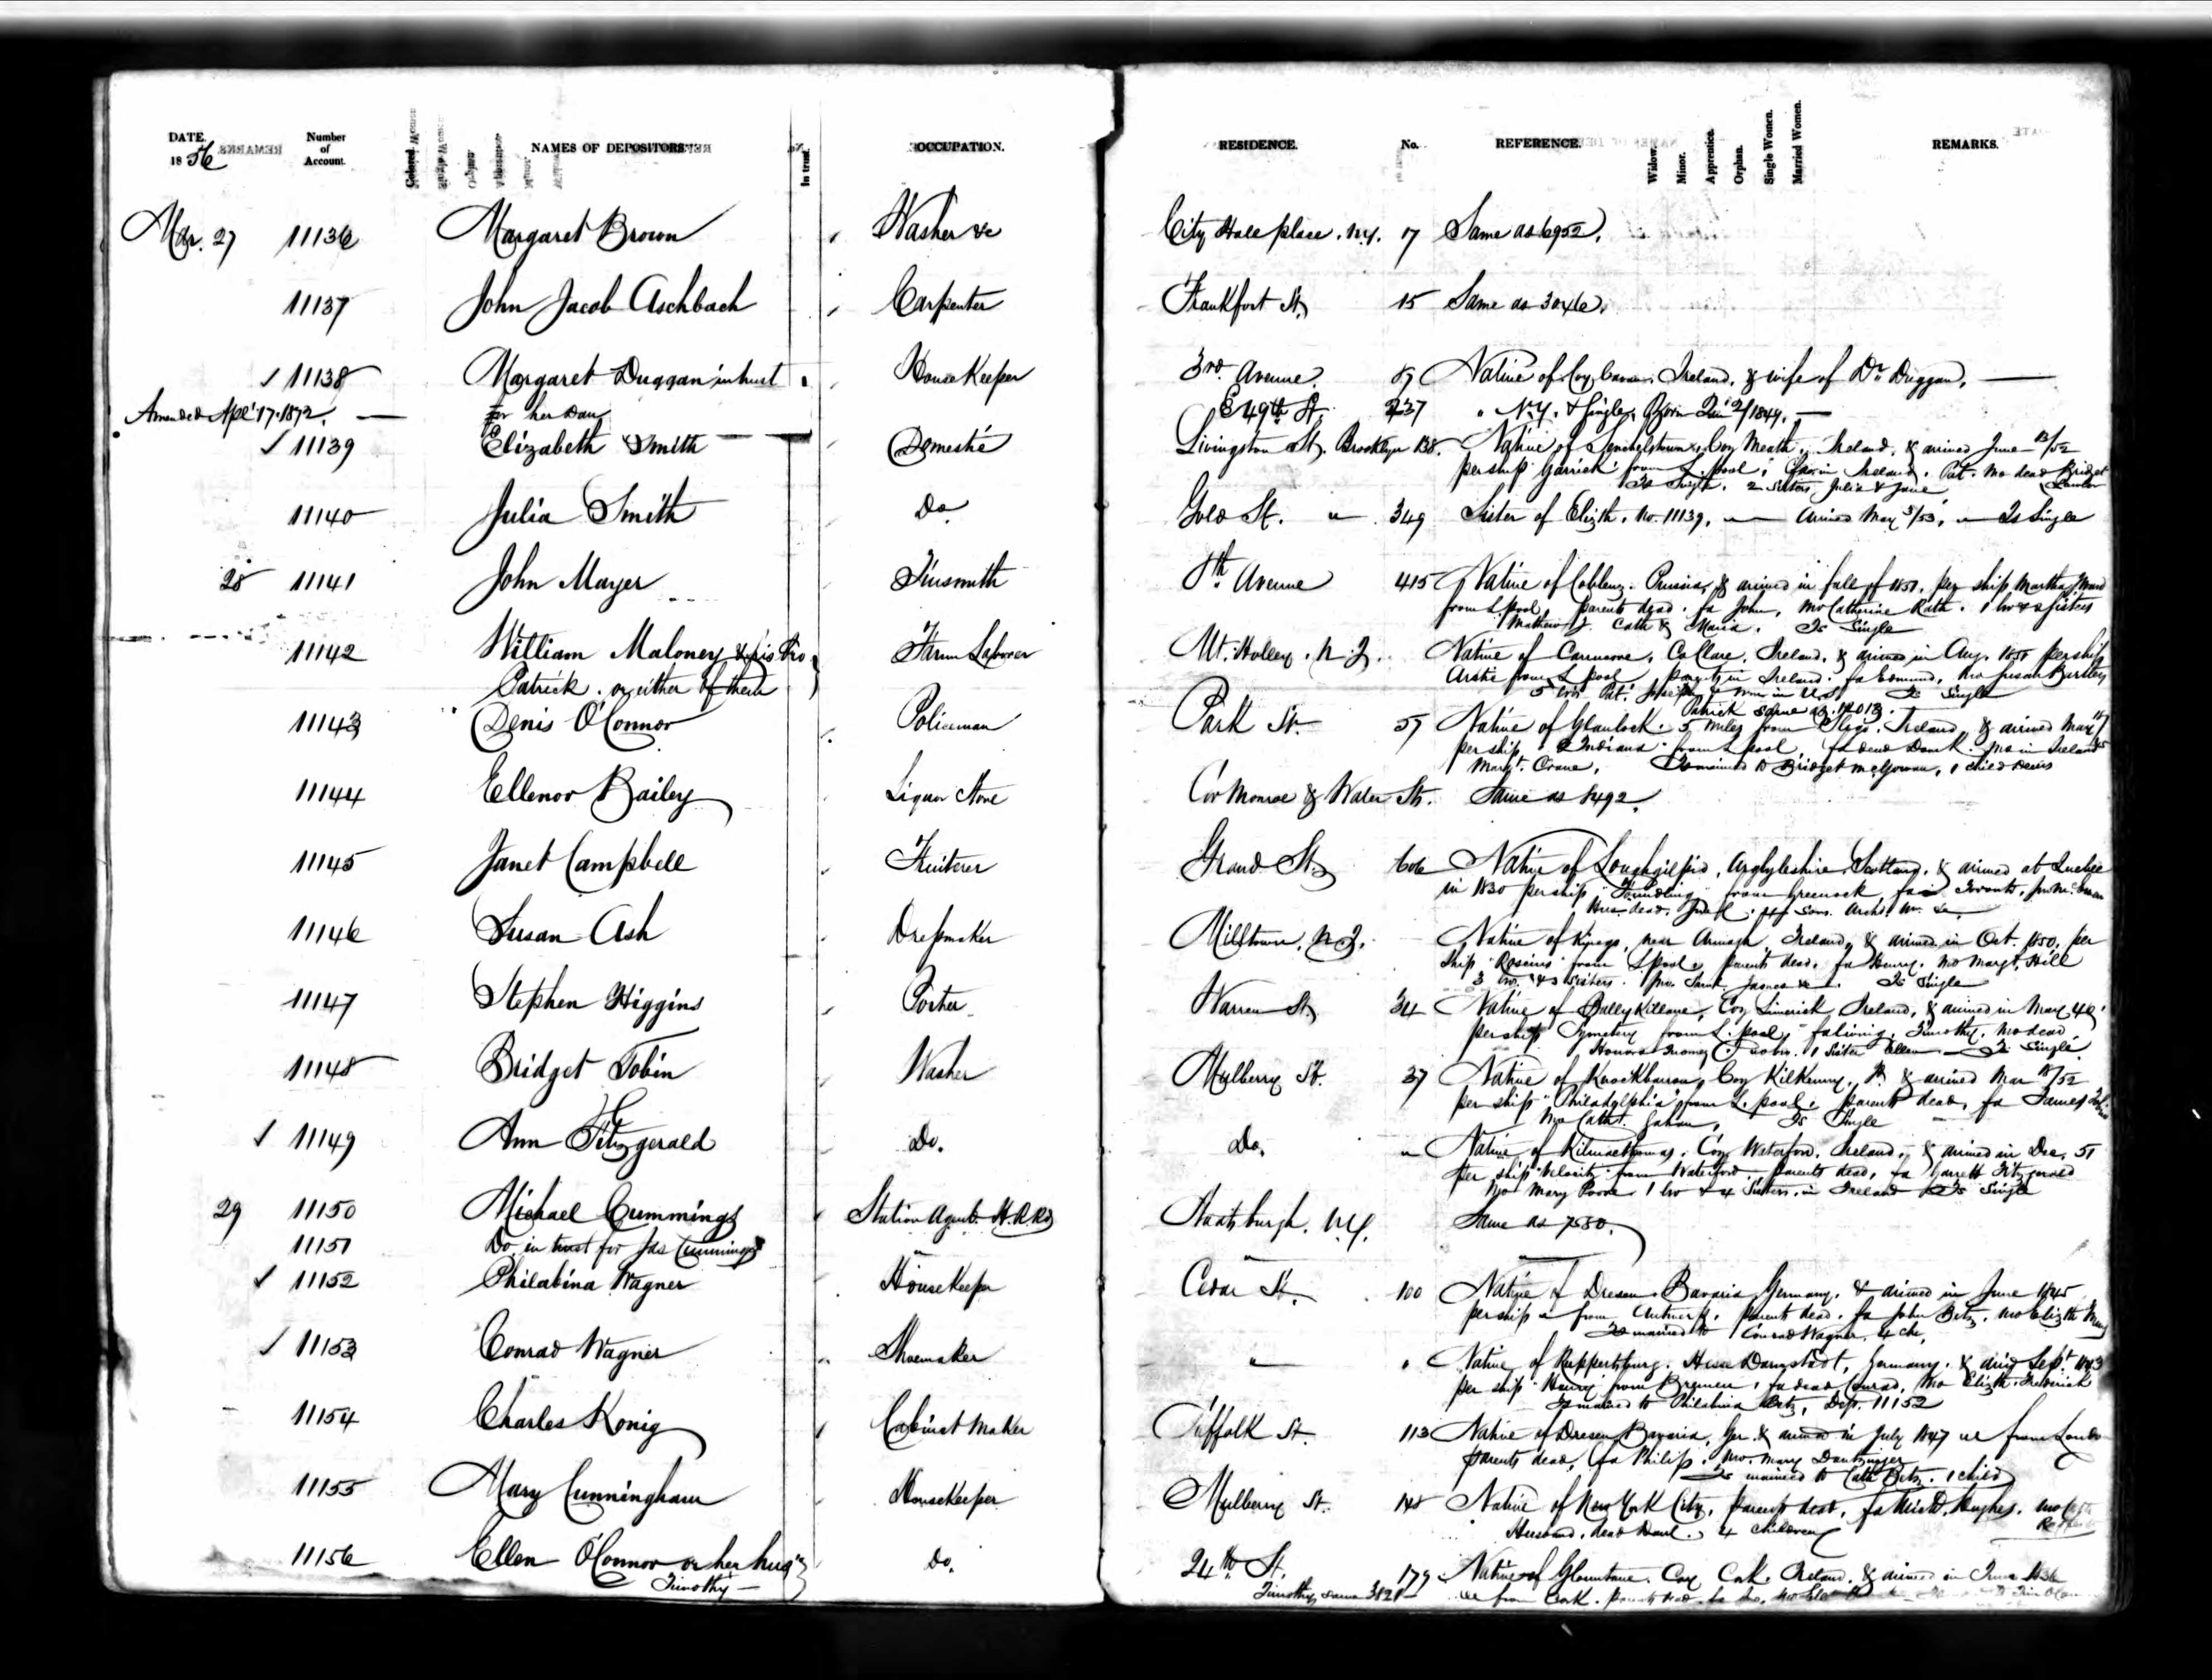 DATE. 1856 Number of Account. Colored. NAMES OF DEPOSITORS. In trust. OCCUPATION. RESIDENCE. No. REFERENCE. Widow. Minor. Apprentice. Orphan. Single Women. Married Women. REMARKS.
Mar. 27 11136 Margaret Brown Washer &c City Hall place. N.Y. 17 Same as 6952.
11137 John Jacob Aschbach Carpenter Frankfort St. 15 Same as 3046.
✓ 11138 Margaret Duggan in trust HouseKeeper 3rd Avenue. 89 Native of Coy Cavan. Ireland, & wife of Dr. Duggan.
Amended Apl. 17. 1872. for her Dau E 49th St. 237 " N.Y. & Single. Born 1849.
✓ 11139 Elizabeth Smith Domestic Livingston St. Brooklyn 138. Native of Coy Meath, Ireland, & arrived June 13/52
per ship "Garrick" from L.pool; in Ireland. Pat. Mo dead Bridget Lawler
Is Single. 2 Sisters, Julia & Jane
11140 Julia Smith Do. Gold St. " 349 Sister of Elizth. No. 11139. Arrived May 3/53. Is Single
28 11141 John Mayer Tinsmith 8th Avenue 415 Native of Coblenz. Prussia, & arrived in fall of 1851, per ship Martha Ward
from L.pool, parents dead. fa John, Mo Catherine Rath. 1 bro & 2 sisters
Mathew J. Cath & Maria. Is Single
11142 William Maloney & his bro Farm Laborer Mt. Holley. N.J. Native of Carnacove, Co Clare, Ireland, & arrived in Aug. 1850 per ship
Patrick. or either of them Arctic from L.pool, parents in Ireland. fa Edmund, Mo Susan Bartley
5 bros Pat. Joseph & Tom in U.S. Is Single
Patrick same as 14013.
11143 Denis O'Connor Policeman Park St. 57 Native of Glanlock. 5 miles from Sligo. Ireland, & arrived May
per ship "Indiana" from L.pool, fa dead Domk. Mo in Ireland
Margt. Crane, Is married to Bridget McGowan, 1 child Denis
11144 Ellenor Bailey Liquor Store Cor Monroe & Water Sts. Same as 8492.
11145 Janet Campbell Fruiterer Grand St. 606 Native of Loughgilpid, Argyleshire Scotland, & arrived at Quebec
in 1830 per ship "Foundling" from Greenock,
Hus dead,
11146 Susan Ash Dressmaker Milltown, N.J. Native of near Armagh, Ireland, & arrived in Oct. 1850, per
Ship "Roscius" from L.pool, parents dead. fa Henry. Mo Margt. Hill
3 bro. & 3 Sisters. James &c Is Single
11147 Stephen Higgins Porter Warren St. 34 Native of BallyKillane, Coy Limerick, Ireland, & arrived in May
per ship from L.pool, fa living, Timothy, Mo dead
Honora 1 Sister Ellen Is Single
11148 Bridget Tobin Washer Mulberry St. 37 Native of Knockbarron, Coy KilKenny, & arrived Mar 18/52
per ship "Philadelphia" from L.pool, parents dead, fa James Tobin
Mo Cath. Gahan, Is Single
✓ 11149 Ann Fitzgerald Do. Do. " Native of Kilmacthomas, Coy Waterford. Ireland, & arrived in Dec. 51
per ship "Velocity" from Waterford. parents dead, fa Garrett Fitzgerald
Mo Mary Poore. 1 bro & 4 Sisters, in Ireland Is Single
29 11150 Michael Cummings Station Agent. H.R.Rd Staatsburgh. N.Y. Same as 7580.
11151 Do. in trust for Jas Cummings
✓ 11152 Philabina Wagner HouseKeeper Cedar St. 100 Native of Dresen Bavaria, Germany, & arrived in June 1845
per ship from Antwerp. Parents dead. fa John Betz. Mo Elizth
Is married to Conrad Wagner. 4 ch.
✓ 11153 Conrad Wagner Shoemaker " " Native of Ruppertsburg. Hesse Darmstadt, Germany, & arrd Sept. 1843
per ship "Henry" from Bremen, fa dead Conrad, Mo Elizth Frederick
Is married to Philabina Betz, Dep. 11152
11154 Charles Konig Cabinet Maker Suffolk St. 113 Native of Dresen Bavaria, Ger. & arrived in July 1847 from London
parents dead, fa Philip. Mo. Mary
Is married to Cath Betz. 1 child
11155 Mary Cunningham HouseKeeper Mulberry St. 148 Native of New York City. parents dead, fa Michl. Hughes. Mo
Husband, dead Danl. 4 children
11156 Ellen O'Connor or her husd Do. 24th St. 179 Native of Glountane. Coy Cork. Ireland. & arrived in June
Timothy Timothy same 3828 from Cork. parents dead.